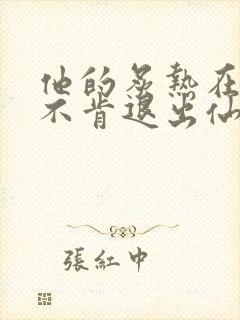 他的炙熱在
不肯退出仙
張紅中